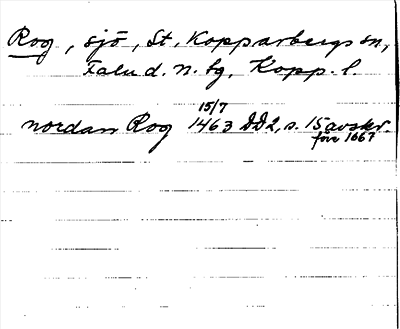 Rog, sjö, St. Kopparbergs sn,
Falu d. N. bg, Kopp. l.
15/7
nordan Rog 1463 DD2, s. 15 avskr.
före 1667